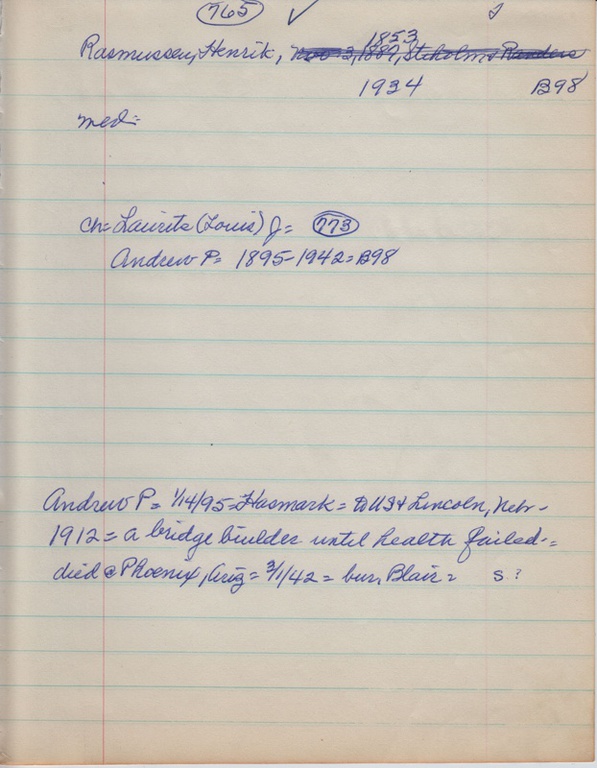 765 ✓
1853
Rasmussen, Henrik, Nov 3, 1889,
1934 B98
med=
ch= Lauritz (Louis) J= 773
Andrew P= 1895-1942=B98
Andrew P= 1/14/95=Hasmark= to US & Lincoln, Nebr-
1912= a bridge builder until health failed-=
died @ Phoenix, Ariz= 3/1/42= bur, Blair= S?